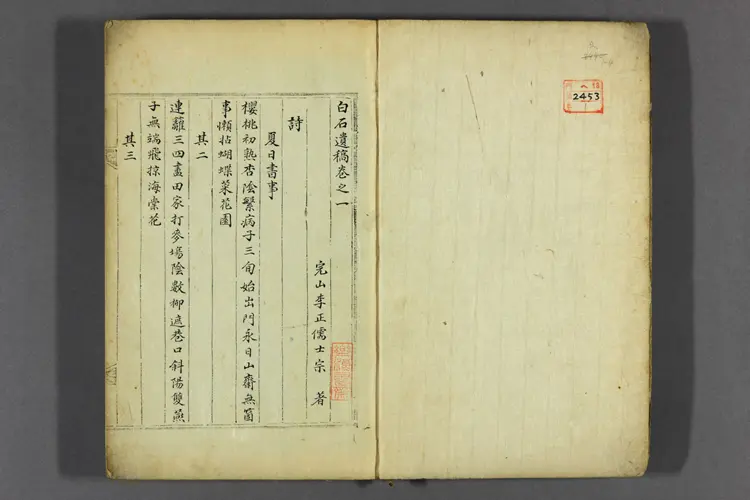 白石遺稿卷之一
完山李正儒士宗 著
詩
夏日書事
櫻桃初熟杏陰繁病子三旬始出門永日山齋無箇
事懶拈蝴蝶菜花園
其二
連籬三四盡田家打麥場陰數柳遮巷口斜陽雙燕
子無端飛掠海棠花
其三
2453